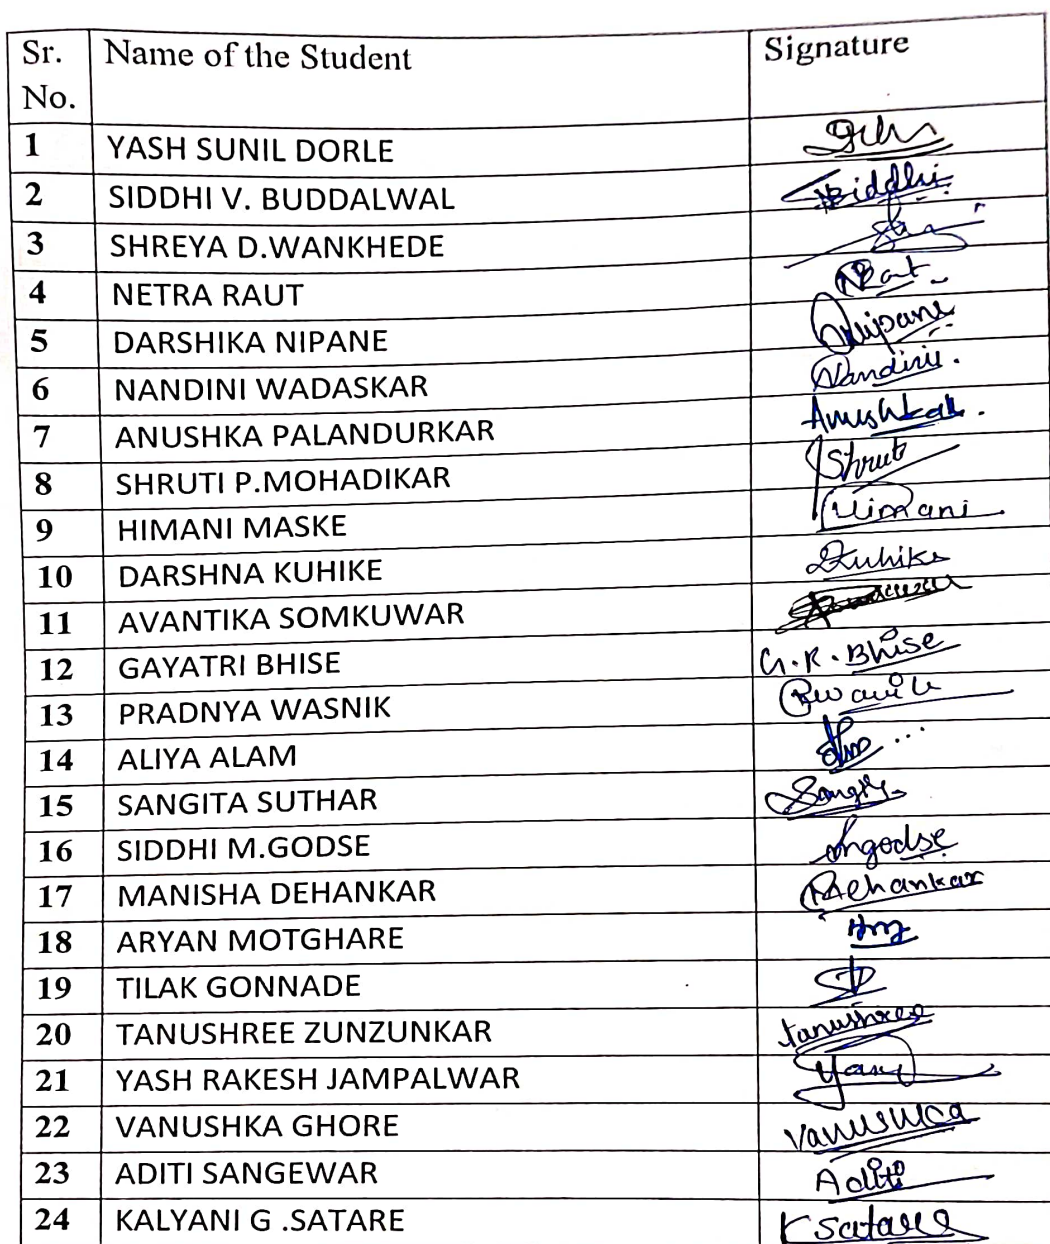 Sr. No. Name of the Student Signature
1 YASH SUNIL DORLE
2 SIDDHI V. BUDDALWAL Siddhi
3 SHREYA D.WANKHEDE
4 NETRA RAUT
5 DARSHIKA NIPANE
6 NANDINI WADASKAR Nandini.
7 ANUSHKA PALANDURKAR
8 SHRUTI P.MOHADIKAR
9 HIMANI MASKE Himani
10 DARSHNA KUHIKE
11 AVANTIKA SOMKUWAR
12 GAYATRI BHISE G.R.Bhise
13 PRADNYA WASNIK
14 ALIYA ALAM
15 SANGITA SUTHAR
16 SIDDHI M.GODSE
17 MANISHA DEHANKAR
18 ARYAN MOTGHARE
19 TILAK GONNADE
20 TANUSHREE ZUNZUNKAR tanushree
21 YASH RAKESH JAMPALWAR
22 VANUSHKA GHORE Vanushka
23 ADITI SANGEWAR Aditi
24 KALYANI G .SATARE K Satare